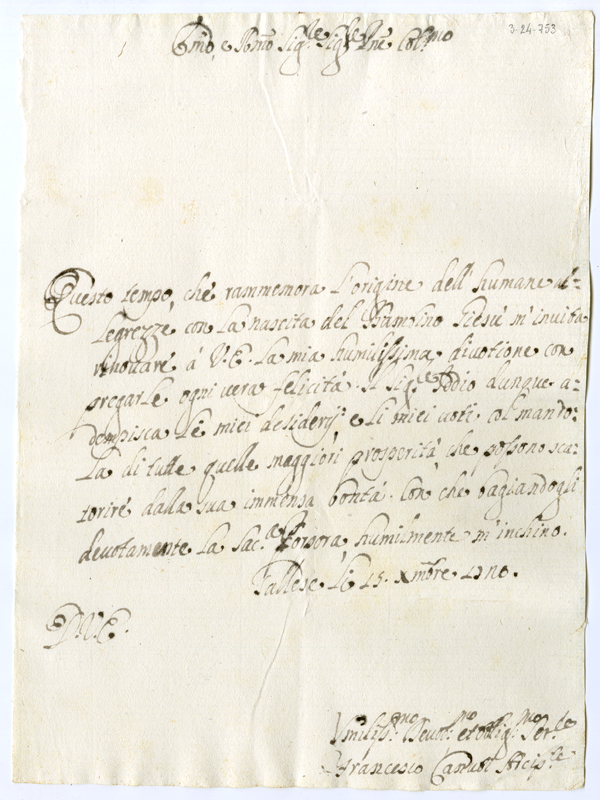 3-24-753
Emo, e Romo Sig.re Sig.re Pne Col.mo
Questo tempo, che rammemora l'origine dell'humane al=
legrezze con la nascita del Bambino Giesù m'invita
rinovare à V.E. la mia humilissima divotione con
pregarle ogni vera felicità. Il Sig.re Iddio dunque a=
dempisca le miei desiderij e li miei voti. col mando=
la di tutte quelle maggiori prosperità che possono sca=
torire dalla sua immensa bontà. Con che bagiandogli
devotamente la Sac.a Porpora humilmente m'inchino.
li 15. Xmbre
D.V.E.
Vmiliss.mo Devot.mo et oblig.mo Ser.re
Francesco Arcip.te